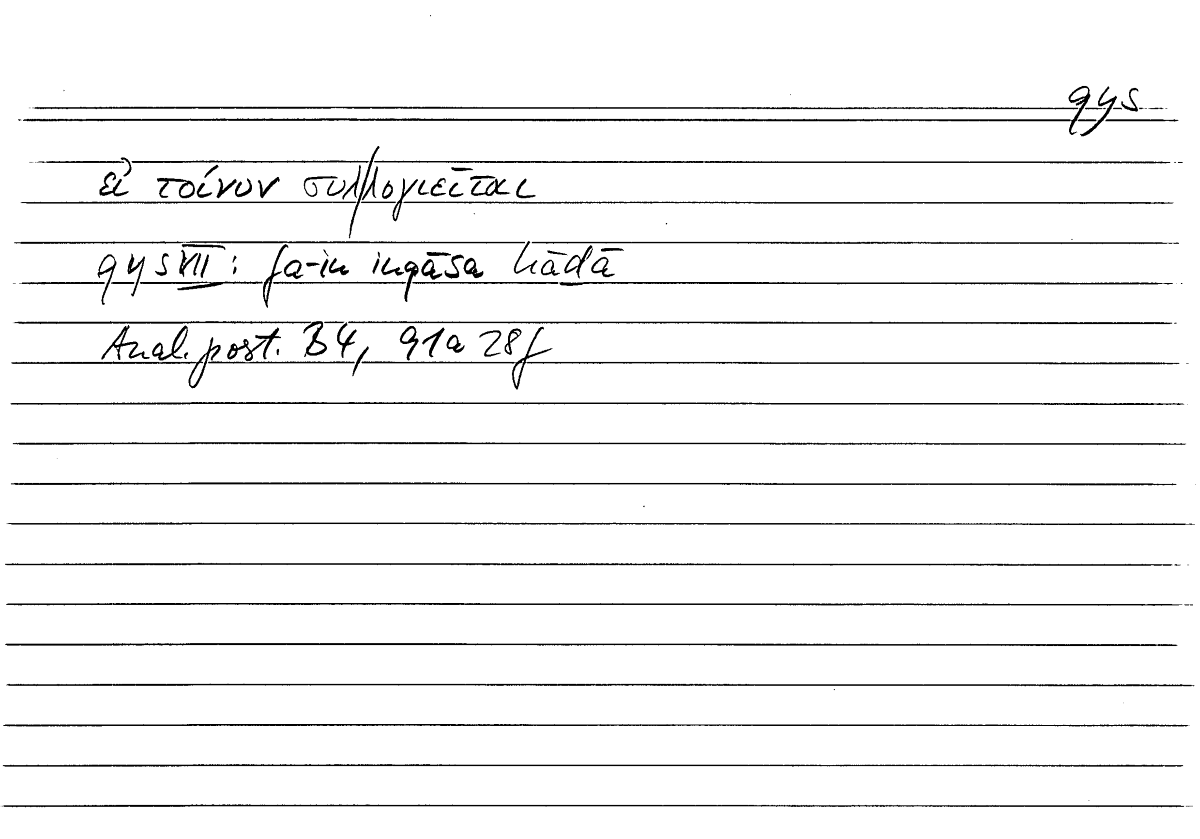 qys
εἰ τοίνυν συλλογιεῖται
qys VII: fa-in inqāsa hāḏā
Anal. post. B4, 91a 28f